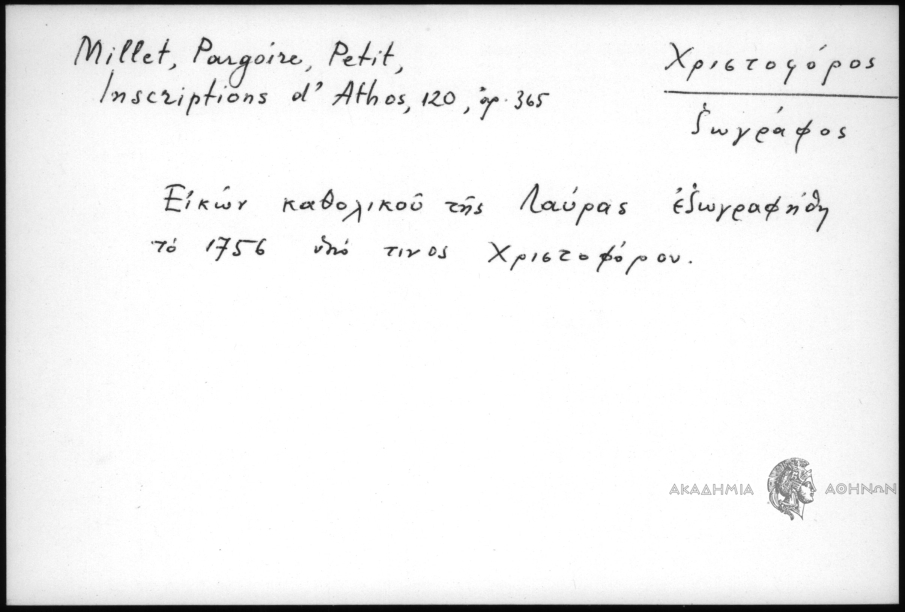 Millet, Pargoire, Petit,
Inscriptions d' Athos, 120, ἀρ. 365
Χριστοφόρος
ζωγράφος
Εἰκὼν καθολικοῦ τῆς Λαύρας ἐζωγραφήθη
τὸ 1756 ὑπό τινος Χριστοφόρου.
ΑΚΑΔΗΜΙΑ ΑΘΗΝΩΝ